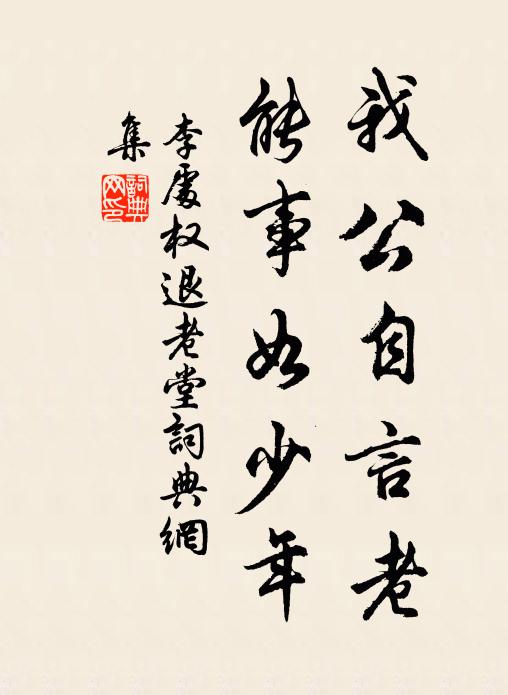 我公自言老
能事如少年
李處权退老堂詞典網
集
詞典網印